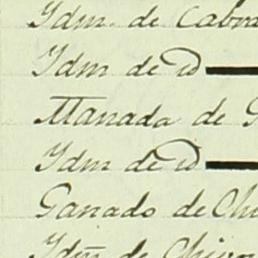 Ydm. de Cabra
Ydm de id
Manada de
Ydm de id
Ganado de Chi
Ydm de Chivo